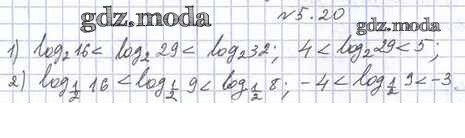 gdz.moda №5.20 gdz.moda
1) log₂16 < log₂ 29 < log₂32; 4 < log₂29 < 5;
2) log_{1/2} 16 < log_{1/2} 9 < log_{1/2} 8; -4 < log_{1/2} 9 < -3.